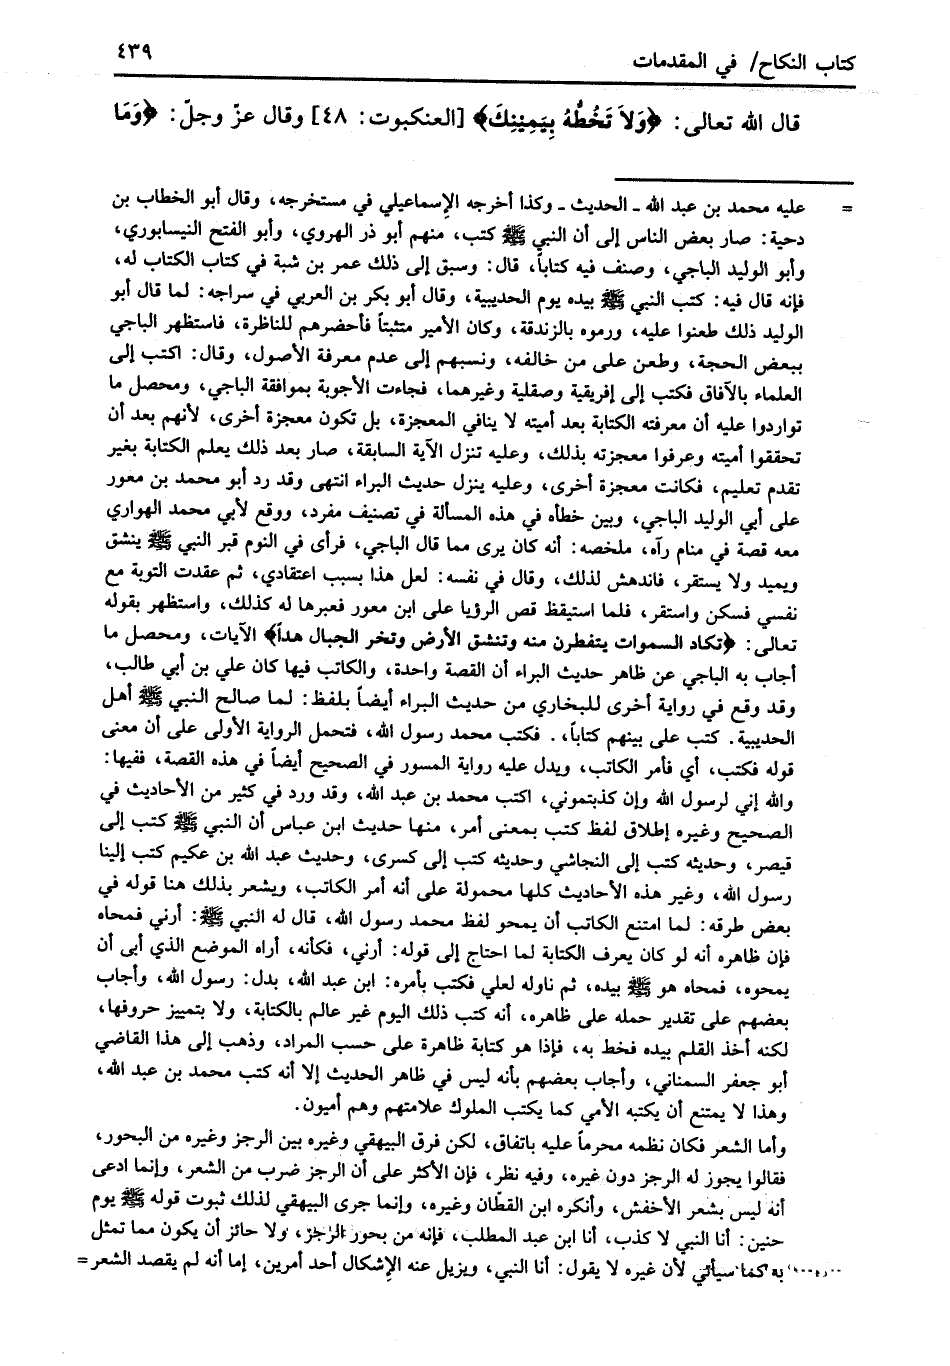 كتاب النكاح/ في المقدمات ٤٣٩
قال الله تعالى: ﴿وَلاَ تَخُطُّهُ بِيَمِيْنِكَ﴾ [العنكبوت: ٤٨] وقال عزّ وجلّ: ﴿وَمَا
= عليه محمد بن عبد الله ـ الحديث ـ وكذا أخرجه الإسماعيلي في مستخرجه، وقال أبو الخطاب بن
دحية: صار بعض الناس إلى أن النبي ﷺ كتب، منهم أبو ذر الهروي، وأبو الفتح النيسابوري،
وأبو الوليد الباجي، وصنف فيه كتاباً، قال: وسبق إلى ذلك عمر بن شبة في كتاب الكتاب له،
فإنه قال فيه: كتب النبي ﷺ بيده يوم الحديبية، وقال أبو بكر بن العربي في سراجه: لما قال أبو
الوليد ذلك طعنوا عليه، ورموه بالزندقة، وكان الأمير متثبتاً فأحضرهم للناظرة، فاستظهر الباجي
ببعض الحجة، وطعن على من خالفه، ونسبهم إلى عدم معرفة الأصول، وقال: اكتب إلى
العلماء بالآفاق فكتب إلى إفريقية وصقلية وغيرهما، فجاءت الأجوبة بموافقة الباجي، ومحصل ما
تواردوا عليه أن معرفته الكتابة بعد أميته لا ينافي المعجزة، بل تكون معجزة أخرى، لأنهم بعد أن
تحققوا أميته وعرفوا معجزته بذلك، وعليه تنزل الآية السابقة، صار بعد ذلك يعلم الكتابة بغير
تقدم تعليم، فكانت معجزة أخرى، وعليه ينزل حديث البراء انتهى وقد رد أبو محمد بن معور
على أبي الوليد الباجي، وبين خطأه في هذه المسألة في تصنيف مفرد، ووقع لأبي محمد الهواري
معه قصة في منام رآه، ملخصه: أنه كان يرى مما قال الباجي، فرأى في النوم قبر النبي ﷺ ينشق
ويميد ولا يستقر، فاندهش لذلك، وقال في نفسه: لعل هذا بسبب اعتقادي، ثم عقدت التوبة مع
نفسي فسكن واستقر، فلما استيقظ قص الرؤيا على ابن معور فعبرها له كذلك، واستظهر بقوله
تعالى: ﴿تكاد السموات يتفطرن منه وتنشق الأرض وتخر الجبال هداً﴾ الآيات، ومحصل ما
أجاب به الباجي عن ظاهر حديث البراء أن القصة واحدة، والكاتب فيها كان علي بن أبي طالب،
وقد وقع في رواية أخرى للبخاري من حديث البراء أيضاً بلفظ: لما صالح النبي ﷺ أهل
الحديبية. كتب على بينهم كتاباً،. فكتب محمد رسول الله، فتحمل الرواية الأولى على أن معنى
قوله فكتب، أي فأمر الكاتب، ويدل عليه رواية المسور في الصحيح أيضاً في هذه القصة، ففيها:
والله إني لرسول الله وإن كذبتموني، اكتب محمد بن عبد الله، وقد ورد في كثير من الأحاديث في
الصحيح وغيره إطلاق لفظ كتب بمعنى أمر، منها حديث ابن عباس أن النبي ﷺ كتب إلى
قيصر، وحديثه كتب إلى النجاشي وحديثه كتب إلى كسرى، وحديث عبد الله بن عكيم كتب إلينا
رسول الله، وغير هذه الأحاديث كلها محمولة على أنه أمر الكاتب، ويشعر بذلك هنا قوله في
بعض طرقه: لما امتنع الكاتب أن يمحو لفظ محمد رسول الله، قال له النبي ﷺ: أرني فمحاه
فإن ظاهره أنه لو كان يعرف الكتابة لما احتاج إلى قوله: أرني، فكأنه، أراه الموضع الذي أبى أن
يمحوه، فمحاه هو ﷺ بيده، ثم ناوله لعلي فكتب بأمره: ابن عبد الله، بدل: رسول الله، وأجاب
بعضهم على تقدير حمله على ظاهره، أنه كتب ذلك اليوم غير عالم بالكتابة، ولا بتمييز حروفها،
لكنه أخذ القلم بيده فخط به، فإذا هو كتابة ظاهرة على حسب المراد، وذهب إلى هذا القاضي
أبو جعفر السمناني، وأجاب بعضهم بأنه ليس في ظاهر الحديث إلا أنه كتب محمد بن عبد الله،
وهذا لا يمتنع أن يكتبه الأمي كما يكتب الملوك علامتهم وهم أميون.
وأما الشعر فكان نظمه محرماً عليه باتفاق، لكن فرق البيهقي وغيره بين الرجز وغيره من البحور،
فقالوا يجوز له الرجز دون غيره، وفيه نظر، فإن الأكثر على أن الرجز ضرب من الشعر، وإنما ادعى
أنه ليس بشعر الأخفش، وأنكره ابن القطّان وغيره، وإنما جرى البيهقي لذلك ثبوت قوله ﷺ يوم
حنين: أنا النبي لا كذب، أنا ابن عبد المطلب، فإنه من بحور الرجز، ولا حائز أن يكون مما تمثل
به كما سيأتي لأن غيره لا يقول: أنا النبي، ويزيل عنه الإشكال أحد أمرين، إما أنه لم يقصد الشعر=